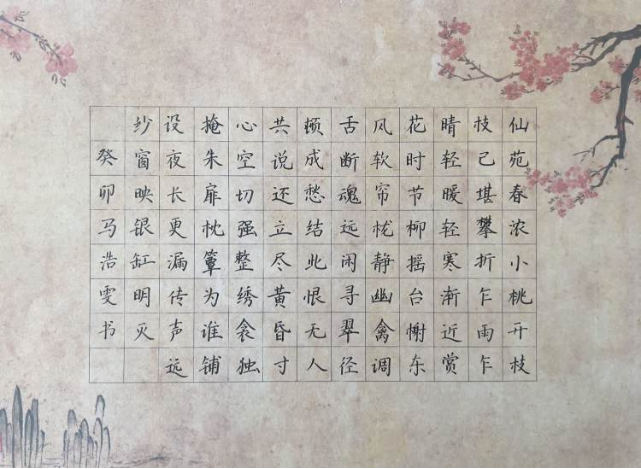 仙苑春浓小桃开枝
枝已堪攀折乍雨乍
晴轻暖轻寒渐近赏
花时节柳摇台榭东
风软帘栊静幽禽调
舌断魂远闲寻翠径
顿成愁结此恨无人
共说还立尽黄昏寸
心空切强整绣衾独
掩朱扉枕簟为谁铺
设夜长更漏传声远
纱窗映银缸明灭
癸卯马浩雯书